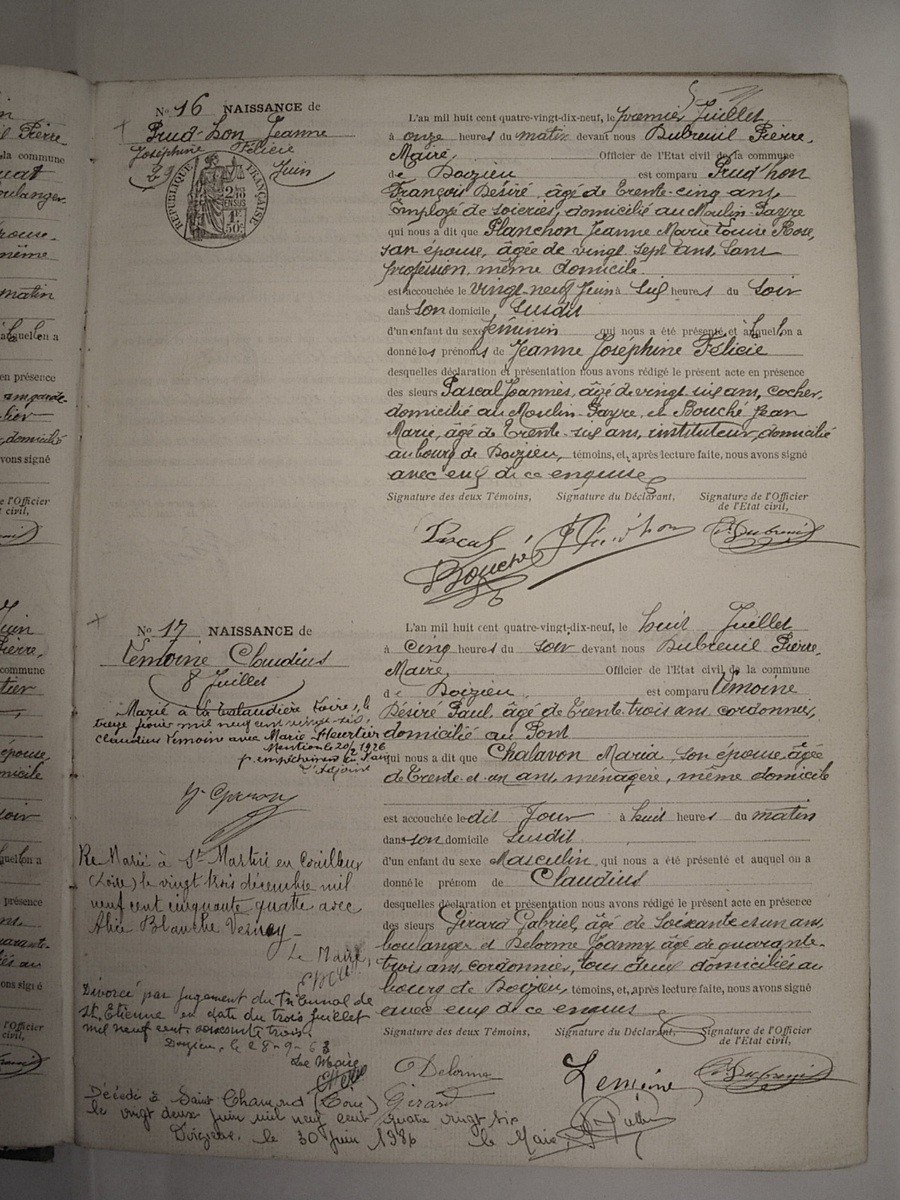 No 16 NAISSANCE de
Prud'hon Jeanne
Joséphine Félicie
29 Juin
RÉPUBLIQUE FRANÇAISE
1F 50c
L'an mil huit cent quatre-vingt-dix-neuf, le premier Juillet
à onze heures du matin devant nous Dubreuil Pierre,
Maire, Officier de l'Etat civil de la commune
de Doizieu est comparu Prud'hon
François Désiré, âgé de trente-cinq ans,
employé de soieries, domicilié au Moulin-Payre
qui nous a dit que Planchon Jeanne Marie Louise Rose,
son épouse, âgée de vingt sept ans, sans
profession, même domicile
est accouchée le vingt-neuf Juin à six heures du soir
dans son domicile susdit
d'un enfant du sexe féminin qui nous a été présenté, et à laquelle on a
donné les prénoms de Jeanne Joséphine Félicie
desquelles déclaration et présentation nous avons rédigé le présent acte en présence
des sieurs Pascal Joannès, âgé de vingt six ans, cocher,
domicilié au Moulin-Payre, et Bouché Jean
Marie, âgé de trente-six ans, instituteur, domicilié
au bourg de Doizieu, témoins, et, après lecture faite, nous avons signé
avec eux de ce enquise
Signature des deux Témoins, Signature du Déclarant, Signature de l'Officier
de l'Etat civil,
Pascal Prud'hon Dubreuil
Bouché
No 17 NAISSANCE de
Lemoine Claudius
8 Juillet
Marié à la Valaudière Loire, le
treize février mil neuf cent vingt-six,
Claudius Lemoine avec Marie
Mention le 20/2 1926
L'adjoint
Re Marié à St Martin en Coailleux
(Loire) le vingt trois décembre mil
neuf cent cinquante quatre avec
Alice Blanche Vernay
Le Maire,
Divorcé par jugement du tribunal de
St Etienne en date du trois juillet
mil neuf cent soixante trois
Doizieu, le 28-9-63
Le Maire
Décédé à Saint Chamond (Loire)
le vingt deux juin mil neuf cent quatre vingt six
Doizieu, le 30 juin 1986 le Maire
L'an mil huit cent quatre-vingt-dix-neuf, le huit Juillet
à cinq heures du soir devant nous Dubreuil Pierre,
Maire, Officier de l'Etat civil de la commune
de Doizieu est comparu Lemoine
Désiré Paul, âgé de trente-trois ans, cordonnier,
domicilié au Pont
qui nous a dit que Chalavon Maria, son épouse, âgée
de trente et un ans, ménagère, même domicile
est accouchée le dit Jour à huit heures du matin
dans son domicile susdit
d'un enfant du sexe Masculin qui nous a été présenté et auquel on a
donné le prénom de Claudius
desquelles déclaration et présentation nous avons rédigé le présent acte en présence
des sieurs Girard Gabriel, âgé de soixante et un ans,
boulanger et Delorme Joanny, âgé de quarante-
trois ans, cordonnier, tous deux domiciliés au
bourg de Doizieu, témoins, et, après lecture faite, nous avons signé
avec eux de ce enquis
Signature des deux Témoins, Signature du Déclarant, Signature de l'Officier
de l'Etat civil,
Delorme Lemoine Dubreuil
Girard